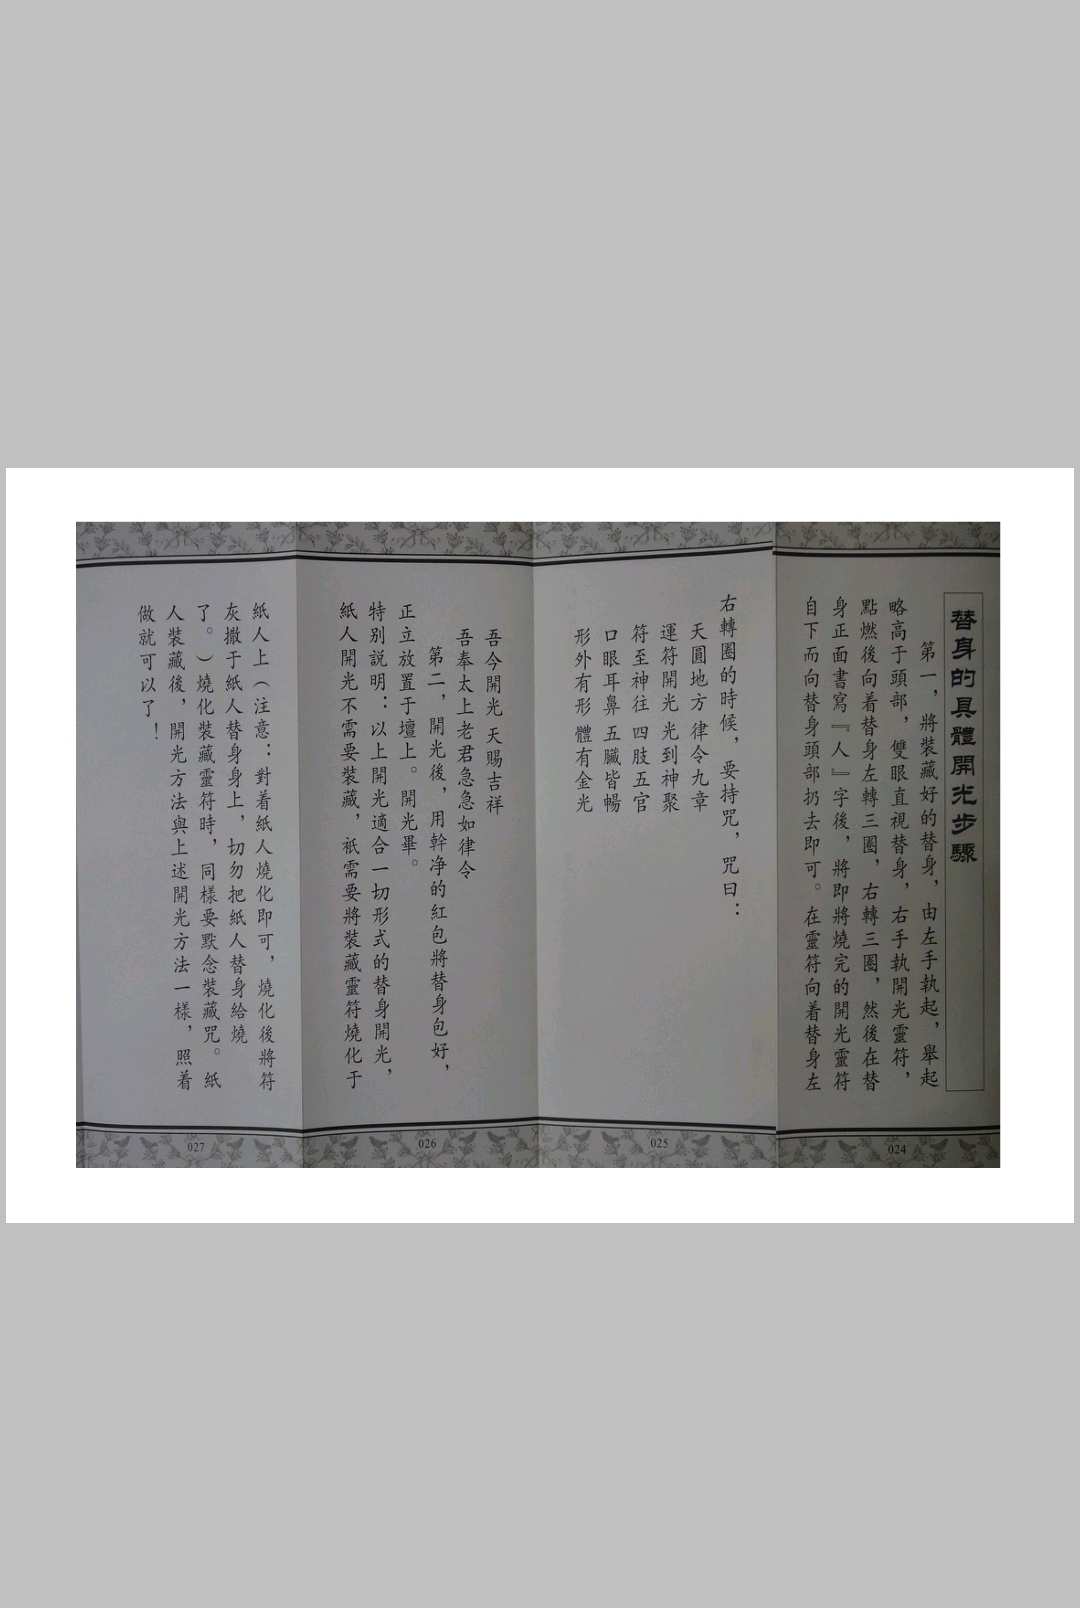 替身的具體開光步驟
第一，將裝藏好的替身，由左手執起，舉起
略高于頭部，雙眼直視替身，右手執開光靈符，
點燃後向着替身左轉三圈，右轉三圈，然後在替
身正面書寫『人』字後，將即將燒完的開光靈符
自下而向替身頭部扔去即可。在靈符向着替身左
024
右轉圈的時候，要持咒，咒曰：
天圓地方 律令九章
運符開光 光到神聚
符至神往 四肢五官
口眼耳鼻 五臟皆暢
形外有形 體有金光
025
吾今開光 天賜吉祥
吾奉太上老君急急如律令
第二，開光後，用幹净的紅包將替身包好，
正立放置于壇上。開光畢。
特别説明：以上開光適合一切形式的替身開光，
紙人開光不需要裝藏，衹需要將裝藏靈符燒化于
026
紙人上（注意：對着紙人燒化即可，燒化後將符
灰撒于紙人替身身上，切勿把紙人替身給燒
了。）燒化裝藏靈符時，同樣要默念裝藏咒。紙
人裝藏後，開光方法與上述開光方法一樣，照着
做就可以了！
027